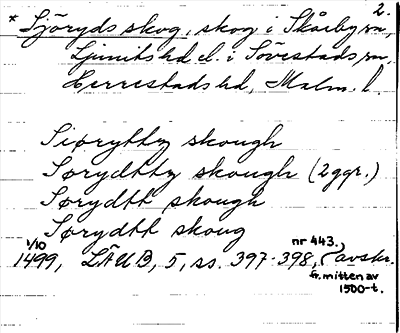 2.
* Sjöryds skog, skog i Skårby sn,
Ljunits hd el. i Sövestads sn,
Herrestads hd, Malm. l.
Siøryttz skough
Sørydttz skough (2 ggr.)
Sørydtt skough
Sørydtt skoug
1/10 1499, LÄUB, 5, ss. 397-398, nr 443. (avskr.
fr. mitten av
1500-t.